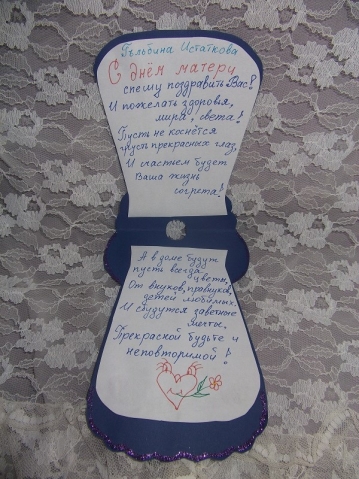 Гъльбина Истаткова
С днём матери
спешу поздравить Вас!
И пожелать здоровья,
мира, света!
Пусть не коснётся
грусть прекрасных глаз,
И счастьем будет
Ваша жизнь
согрета!
А в доме будут
пусть всегда
цветы,
От внуков, правнуков,
детей любимых.
И сбудутся заветные
мечты.
Прекрасной будьте и
неповторимой!